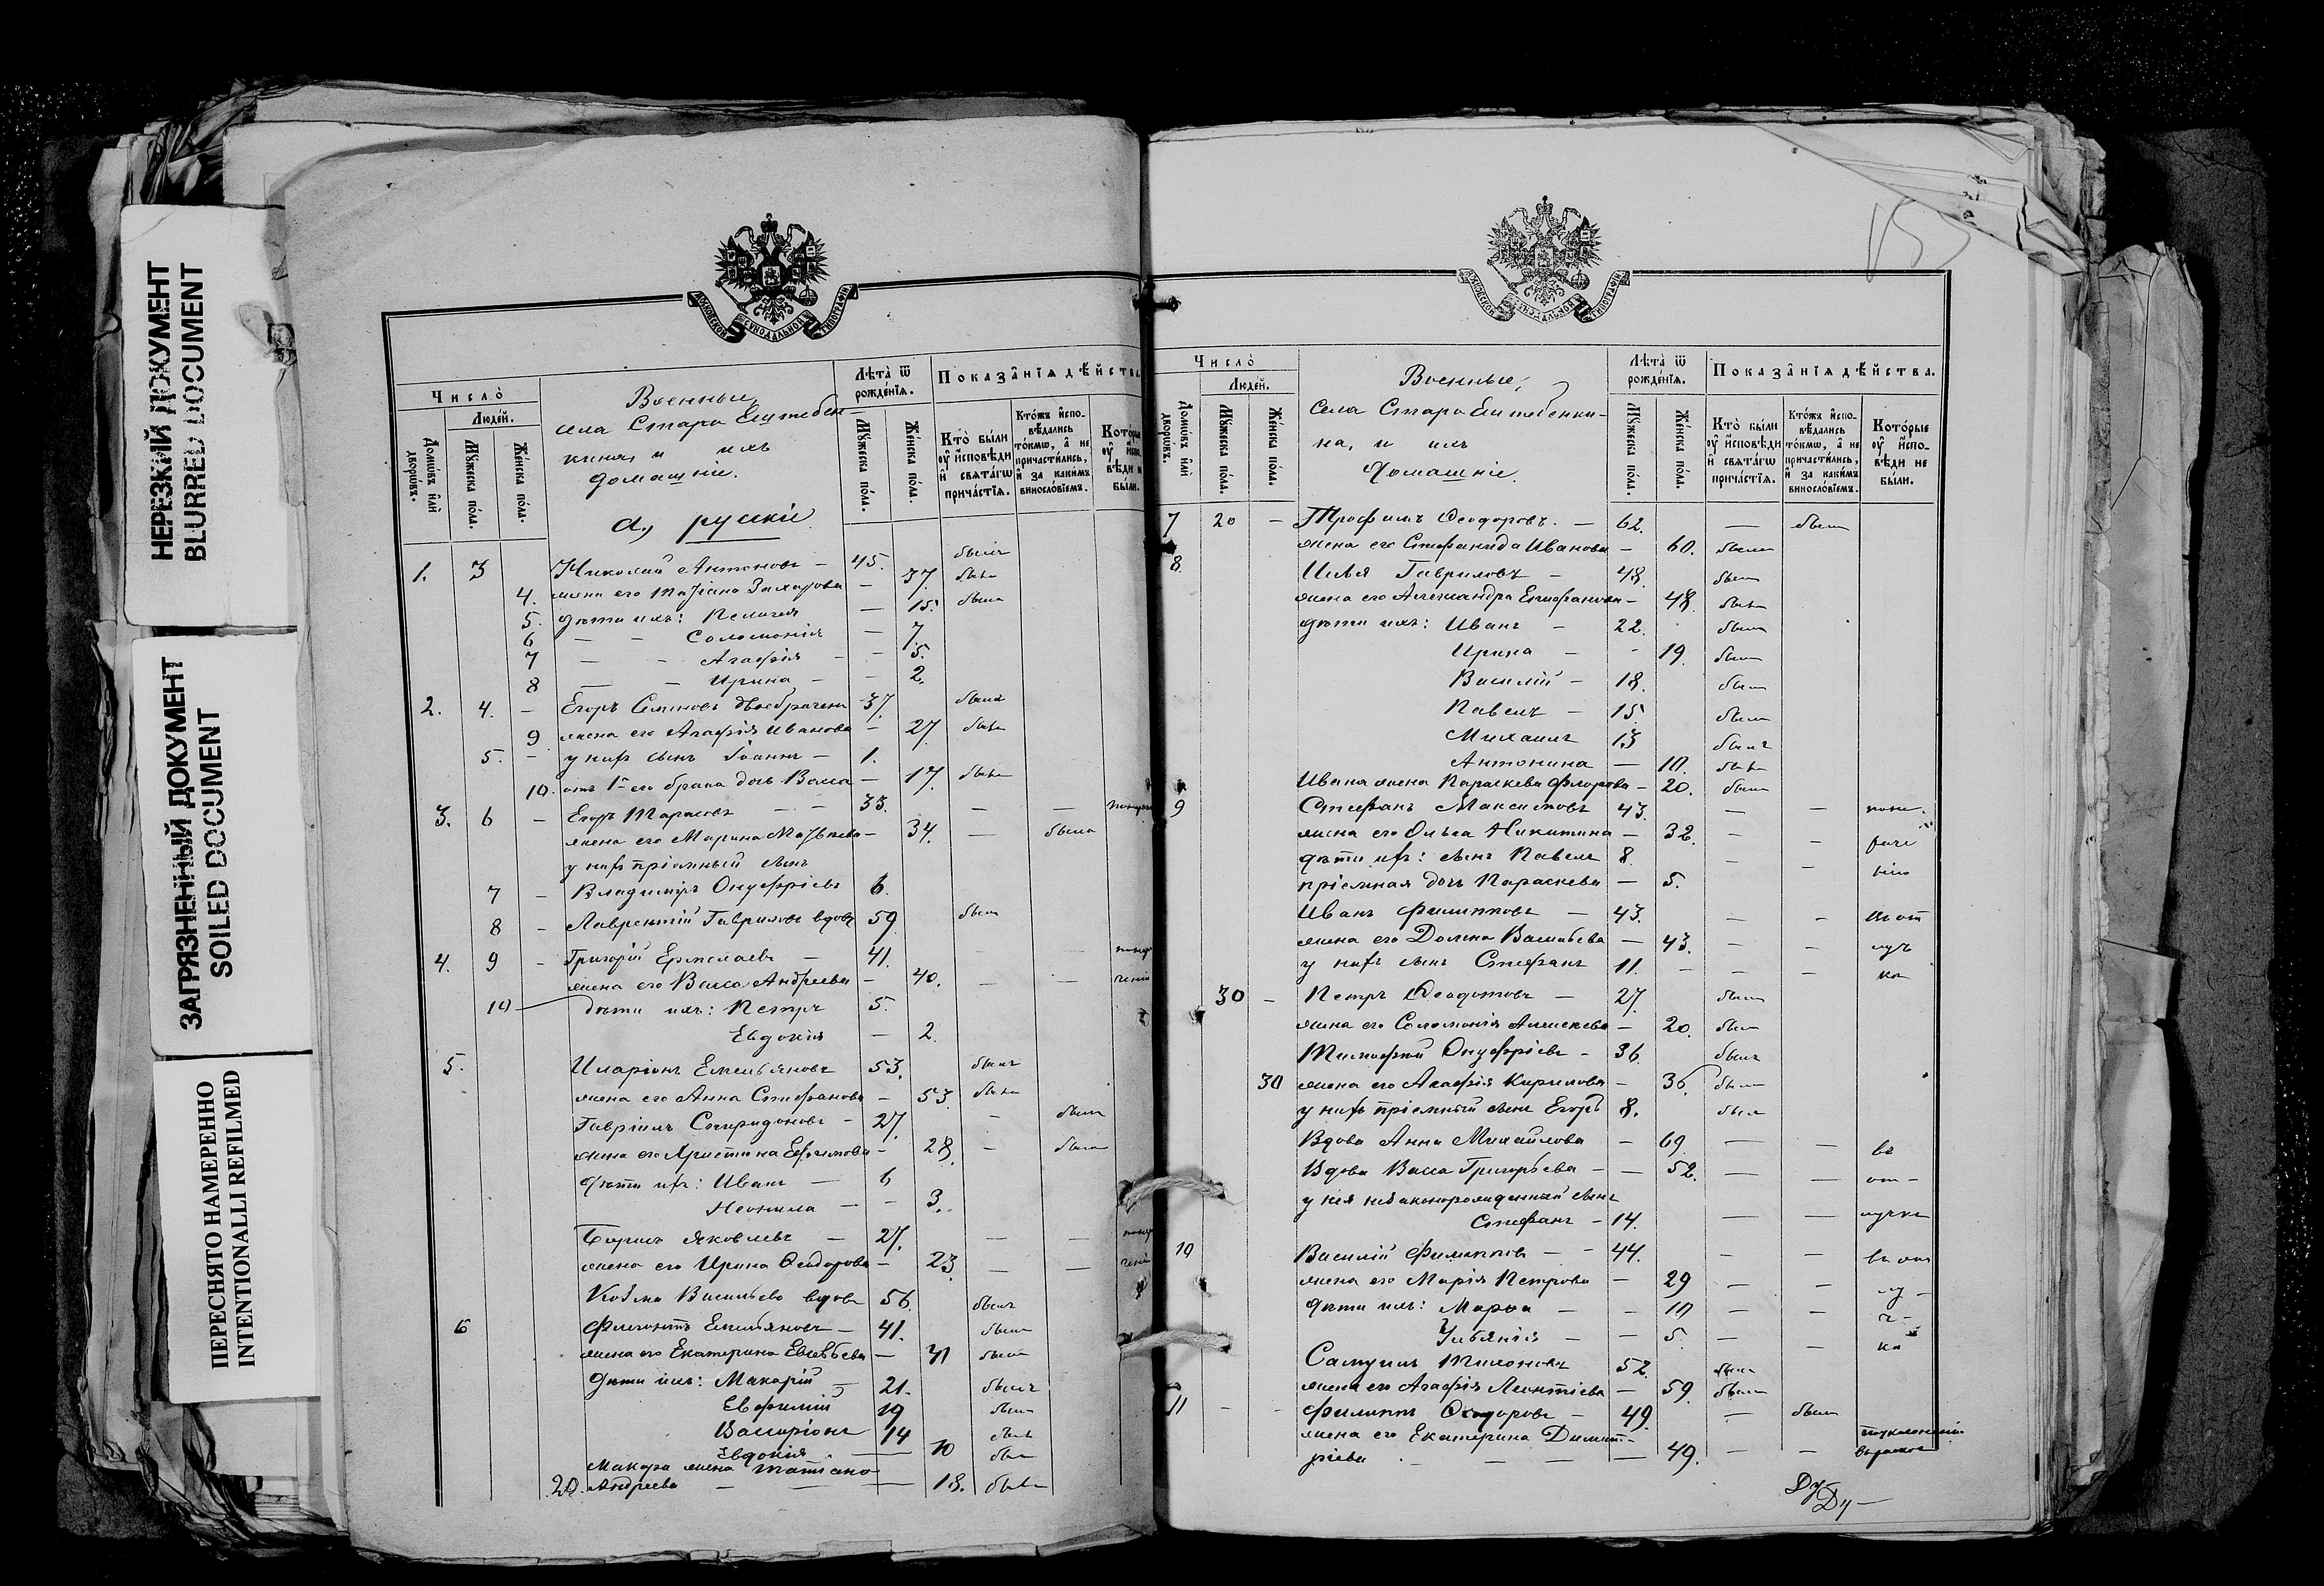 НЕРЕЗКИЙ ДОКУМЕНТ
BLURRED DOCUMENT
ЗАГРЯЗНЕННЫЙ ДОКУМЕНТ
SOILED DOCUMENT
ПЕРЕСНЯТО НАМЕРЕННО
INTENTIONALLI REFILMED
МОСКОВСКОЙ СУНОДАЛЬНОЙ ТИПОГРАФІИ
Число̀
Люде́й.
Домѡ́въ и҆лѝ дворѡ́въ.
Мꙋ́жеска по́ла.
Же́нска по́ла.
Военные,
села Старо Ештебен
кина, и ихъ
домашніе.
а, русскіе
Лѣта̀ ѿ рожде́нїѧ.
Мꙋ́жеска по́ла.
Же́нска по́ла.
Показа̂нїѧ дѣ́йства
Кто̀ бы́ли
ᲂу҆ и҆сповѣ́ди
и҆ свѧта́гѡ
прича́стїѧ.
Кто́жъ и҆спо-
вѣ́дались
то́кмѡ, а҆ не
причасти́лись,
и҆ за каки́мъ
виносло́вїемъ.
1. 3 Николай Антоновъ — 45. былъ
4. жена его Татіана Захарова — 37 была
5. дѣти ихъ: Пелагея — 15. была
6 — — Соломонія — 7.
7 — — Агафія — 5.
8 — — Ирина — 2.
2. 4. — Егоръ Семеновъ двоебрачен 37.
9 жена его Агафія Иванова — 27 была
5. — у нихъ сынъ Іоаннъ — 1.
10. отъ 1-его брака дочь Васса — 17. была
3. 6 — Егоръ Тарасовъ — 33. — —
жена его Марина Матвѣева — 34. — была
у нихъ пріемный сынъ
7 — Владиміръ Онуфріевъ 6.
8 — Лаврентій Гавриловъ вдовъ 59 былъ
4. 9 — Григорій Ермолаевъ — 41.
жена его Васса Андреева — 40. — —
10 — дѣти ихъ: Петръ 5.
Евдокія — 2.
5. Иларіонъ Емельяновъ 53. былъ
жена его Анна Стефанова — 53. была
Гавріилъ Спиридоновъ — 27. — былъ
жена его Христина Ефимова — 28. — была
дѣти ихъ: Иванъ — 6
Неонила — 3.
Яковлевъ — 27. — —
жена его Ирина Ѳеодорова — 23. — —
Козма Васильевъ вдовъ 56. былъ
6 Филиппъ Емельяновъ — 41. былъ
жена его Екатерина — 41 была
дѣти ихъ: Макарій — 21. былъ
Евфимій 19 былъ
14
Евдокія — 10
Макара жена Татіана
20. Андреева — — 18. была
МОСКОВСКОЙ СУНОДАЛЬНОЙ ТИПОГРАФІИ
Число̀
Люде́й.
Домѡ́въ и҆лѝ дворѡ́въ.
Мꙋ́жеска по́ла.
Же́нска по́ла.
Военные,
села Старо Ештебенки-
на, и ихъ
домашніе.
Лѣта̀ ѿ рожде́нїѧ.
Мꙋ́жеска по́ла.
Же́нска по́ла.
Показа̂нїѧ дѣ́йства.
Кто̀ бы́ли
ᲂу҆ и҆сповѣ́ди
и҆ свѧта́гѡ
прича́стїѧ.
Кто́жъ и҆спо-
вѣ́дались
то́кмѡ, а҆ не
причасти́лись,
и҆ за каки́мъ
виносло́вїемъ.
Кото́рые
ᲂу҆ и҆спо-
вѣ́ди не
бы́ли.
7 20 — Трофимъ Ѳеодоровъ. — 62. — былъ
жена его Стефанида Иванова — 60. была
8. Илья Гавриловъ — 48. былъ
жена его Александра Епифанова — 48. была
дѣти ихъ: Иванъ — 22. былъ
Ирина — 19. была
Василій — 18. былъ
Павелъ — 15. былъ
Михаилъ 13 былъ
Антонина — 10. была
Ивана жена Параскева Флорова — 20. была
9 Стефанъ Максимовъ 43. — —
жена его Ольга Никитина — 32. — —
дѣти ихъ: сынъ Павелъ 8. — —
пріемная дочь Параскева — 5.
Иванъ Филипповъ — 43. — — въ от
жена его Домна Васильева — 43. — — луч
у нихъ сынъ Стефанъ 11. — — — кѣ
30 — Петръ Ѳеодотовъ — 27. былъ
жена его Соломонія Алексѣева — 20. была
Тимофей Онуфріевъ — 36 былъ
30 жена его Агафія Кирилова — 36. была
у нихъ пріемный сынъ Егоръ 8. былъ
Вдова Анна Михайлова — 69. — — въ
Вдова Васса Григорьева — — 52. — — от-
у нея незаконорожденный сынъ
Стефанъ — 14. — — лучкѣ
10 Василій Филипповъ — — 44. — —
жена его Марія Петрова — 29 — — лу-
дѣти ихъ: Марѳа — — 10 — — ч-
Уліянія — — 5. — — кѣ
Самуилъ Тихоновъ 52. былъ
жена его Агафія Леонтіева — 59. была
11 — — Филиппъ Ѳеодоровъ — 49. — былъ
жена его Екатерина Димит-
ріева — — — 49. — —